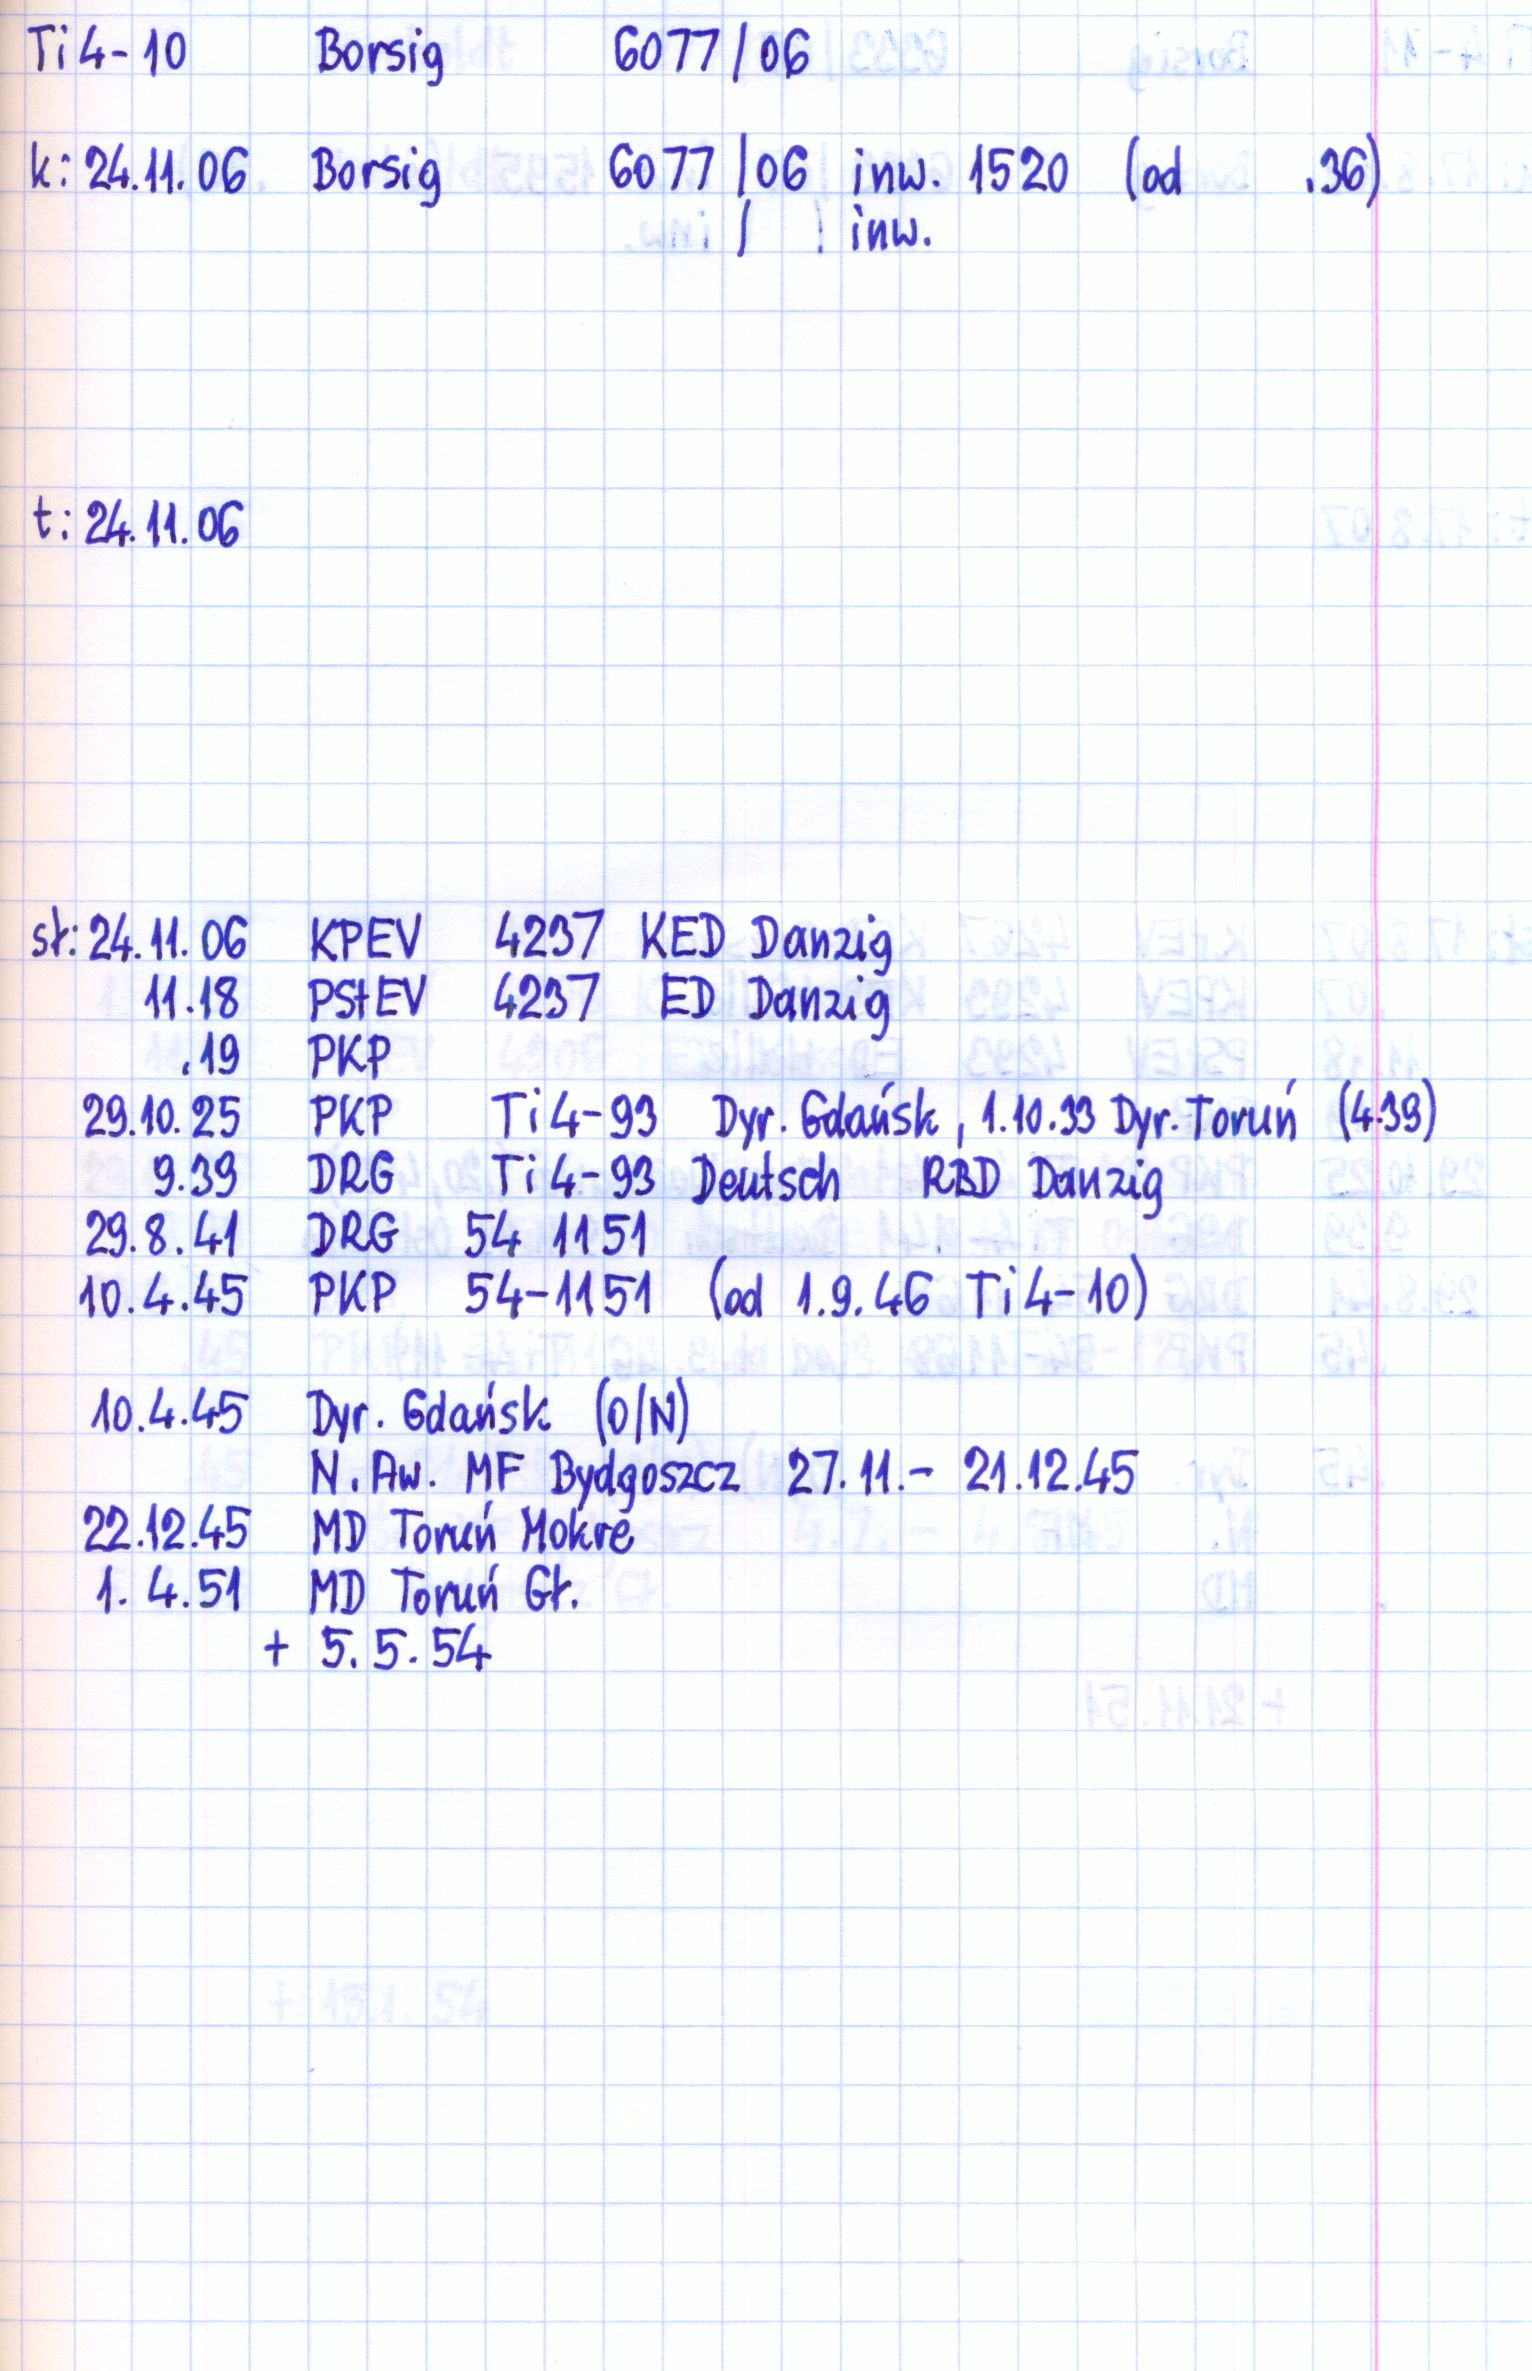 Ti4-10 Borsig 6077/06
k: 24.11.06 Borsig 6077/06 inw. 1520 (od .36)
/ inw.
t: 24.11.06
st: 24.11.06 KPEV 4237 KED Danzig
11.18 PStEV 4237 ED Danzig
.19 PKP
29.10.25 PKP Ti4-93 Dyr. Gdańsk, 1.10.33 Dyr. Toruń (4.39)
9.39 DRG Ti4-93 Deutsch RBD Danzig
29.8.41 DRG 54 1151
10.4.45 PKP 54-1151 (od 1.9.46 Ti4-10)
10.4.45 Dyr. Gdańsk (O/N)
N. Aw. MF Bydgoszcz 27.11.- 21.12.45
22.12.45 MD Toruń Mokre
1.4.51 MD Toruń Gł.
+ 5.5.54